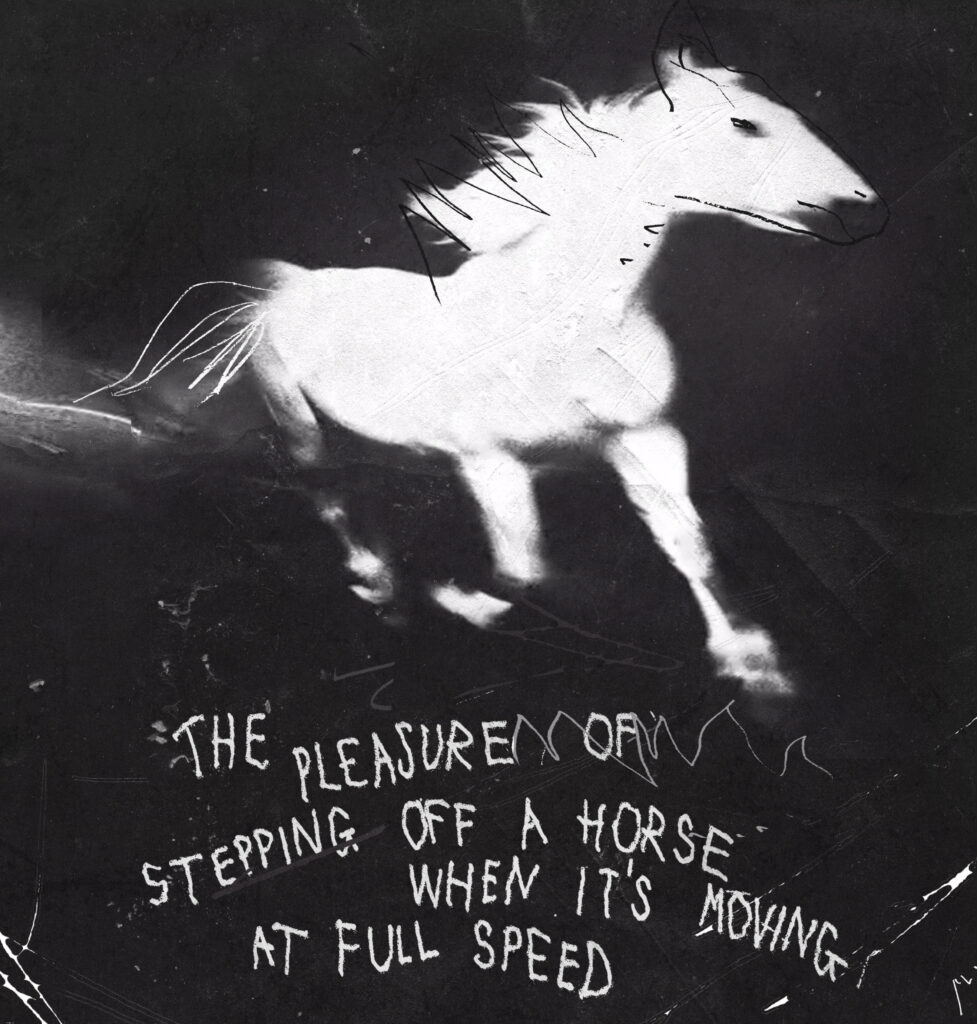 THE PLEASURE OF
STEPPING OFF A HORSE
WHEN IT'S MOVING
AT FULL SPEED